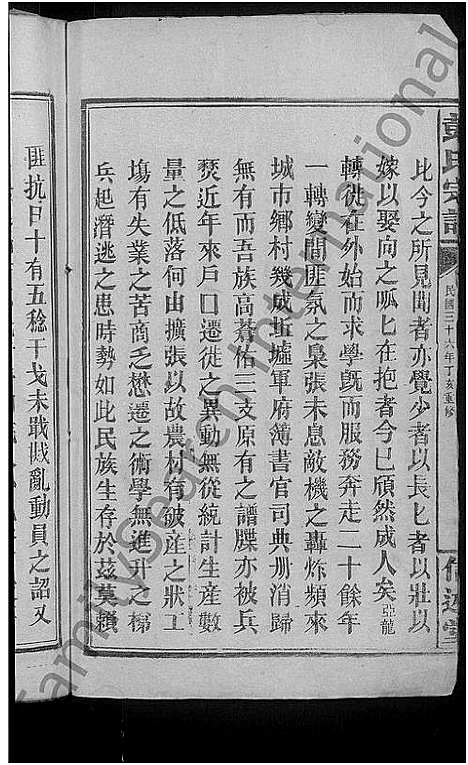 彭氏宗譜
民國三十六年丁亥重修
比今之所見聞者亦覺少者以長匕者以壯以
嫁以娶向之呱匕在抱者今巳頎然成人矣亞龍
轉徙在外始而求學旣而服務奔走二十餘年
一轉變間匪氛之梟張未息敵機之轟炸頻來
城市鄉村幾成坵墟軍府簿書官司典册消歸
無有而吾族高蒼佑三支原有之譜牒亦被兵
燹近年來戶口遷徙之異動無從統計生産數
量之低落何由擴張以故農村有破産之狀工
塲有失業之苦商乏懋遷之術學無進升之梯
兵起潛逃之患時勢如此民族生存於茲莫賴
匪抗日十有五稔干戈未戢戡亂動員之詔又
FamilySearch International